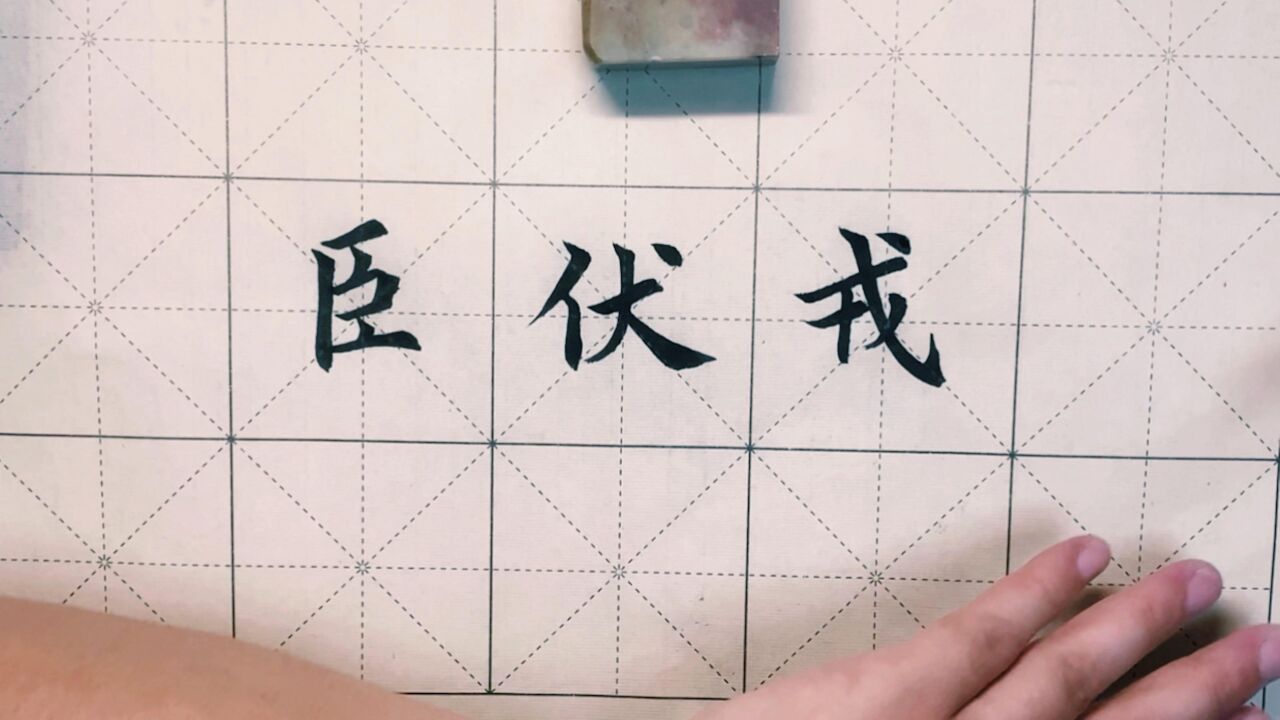 臣伏戎